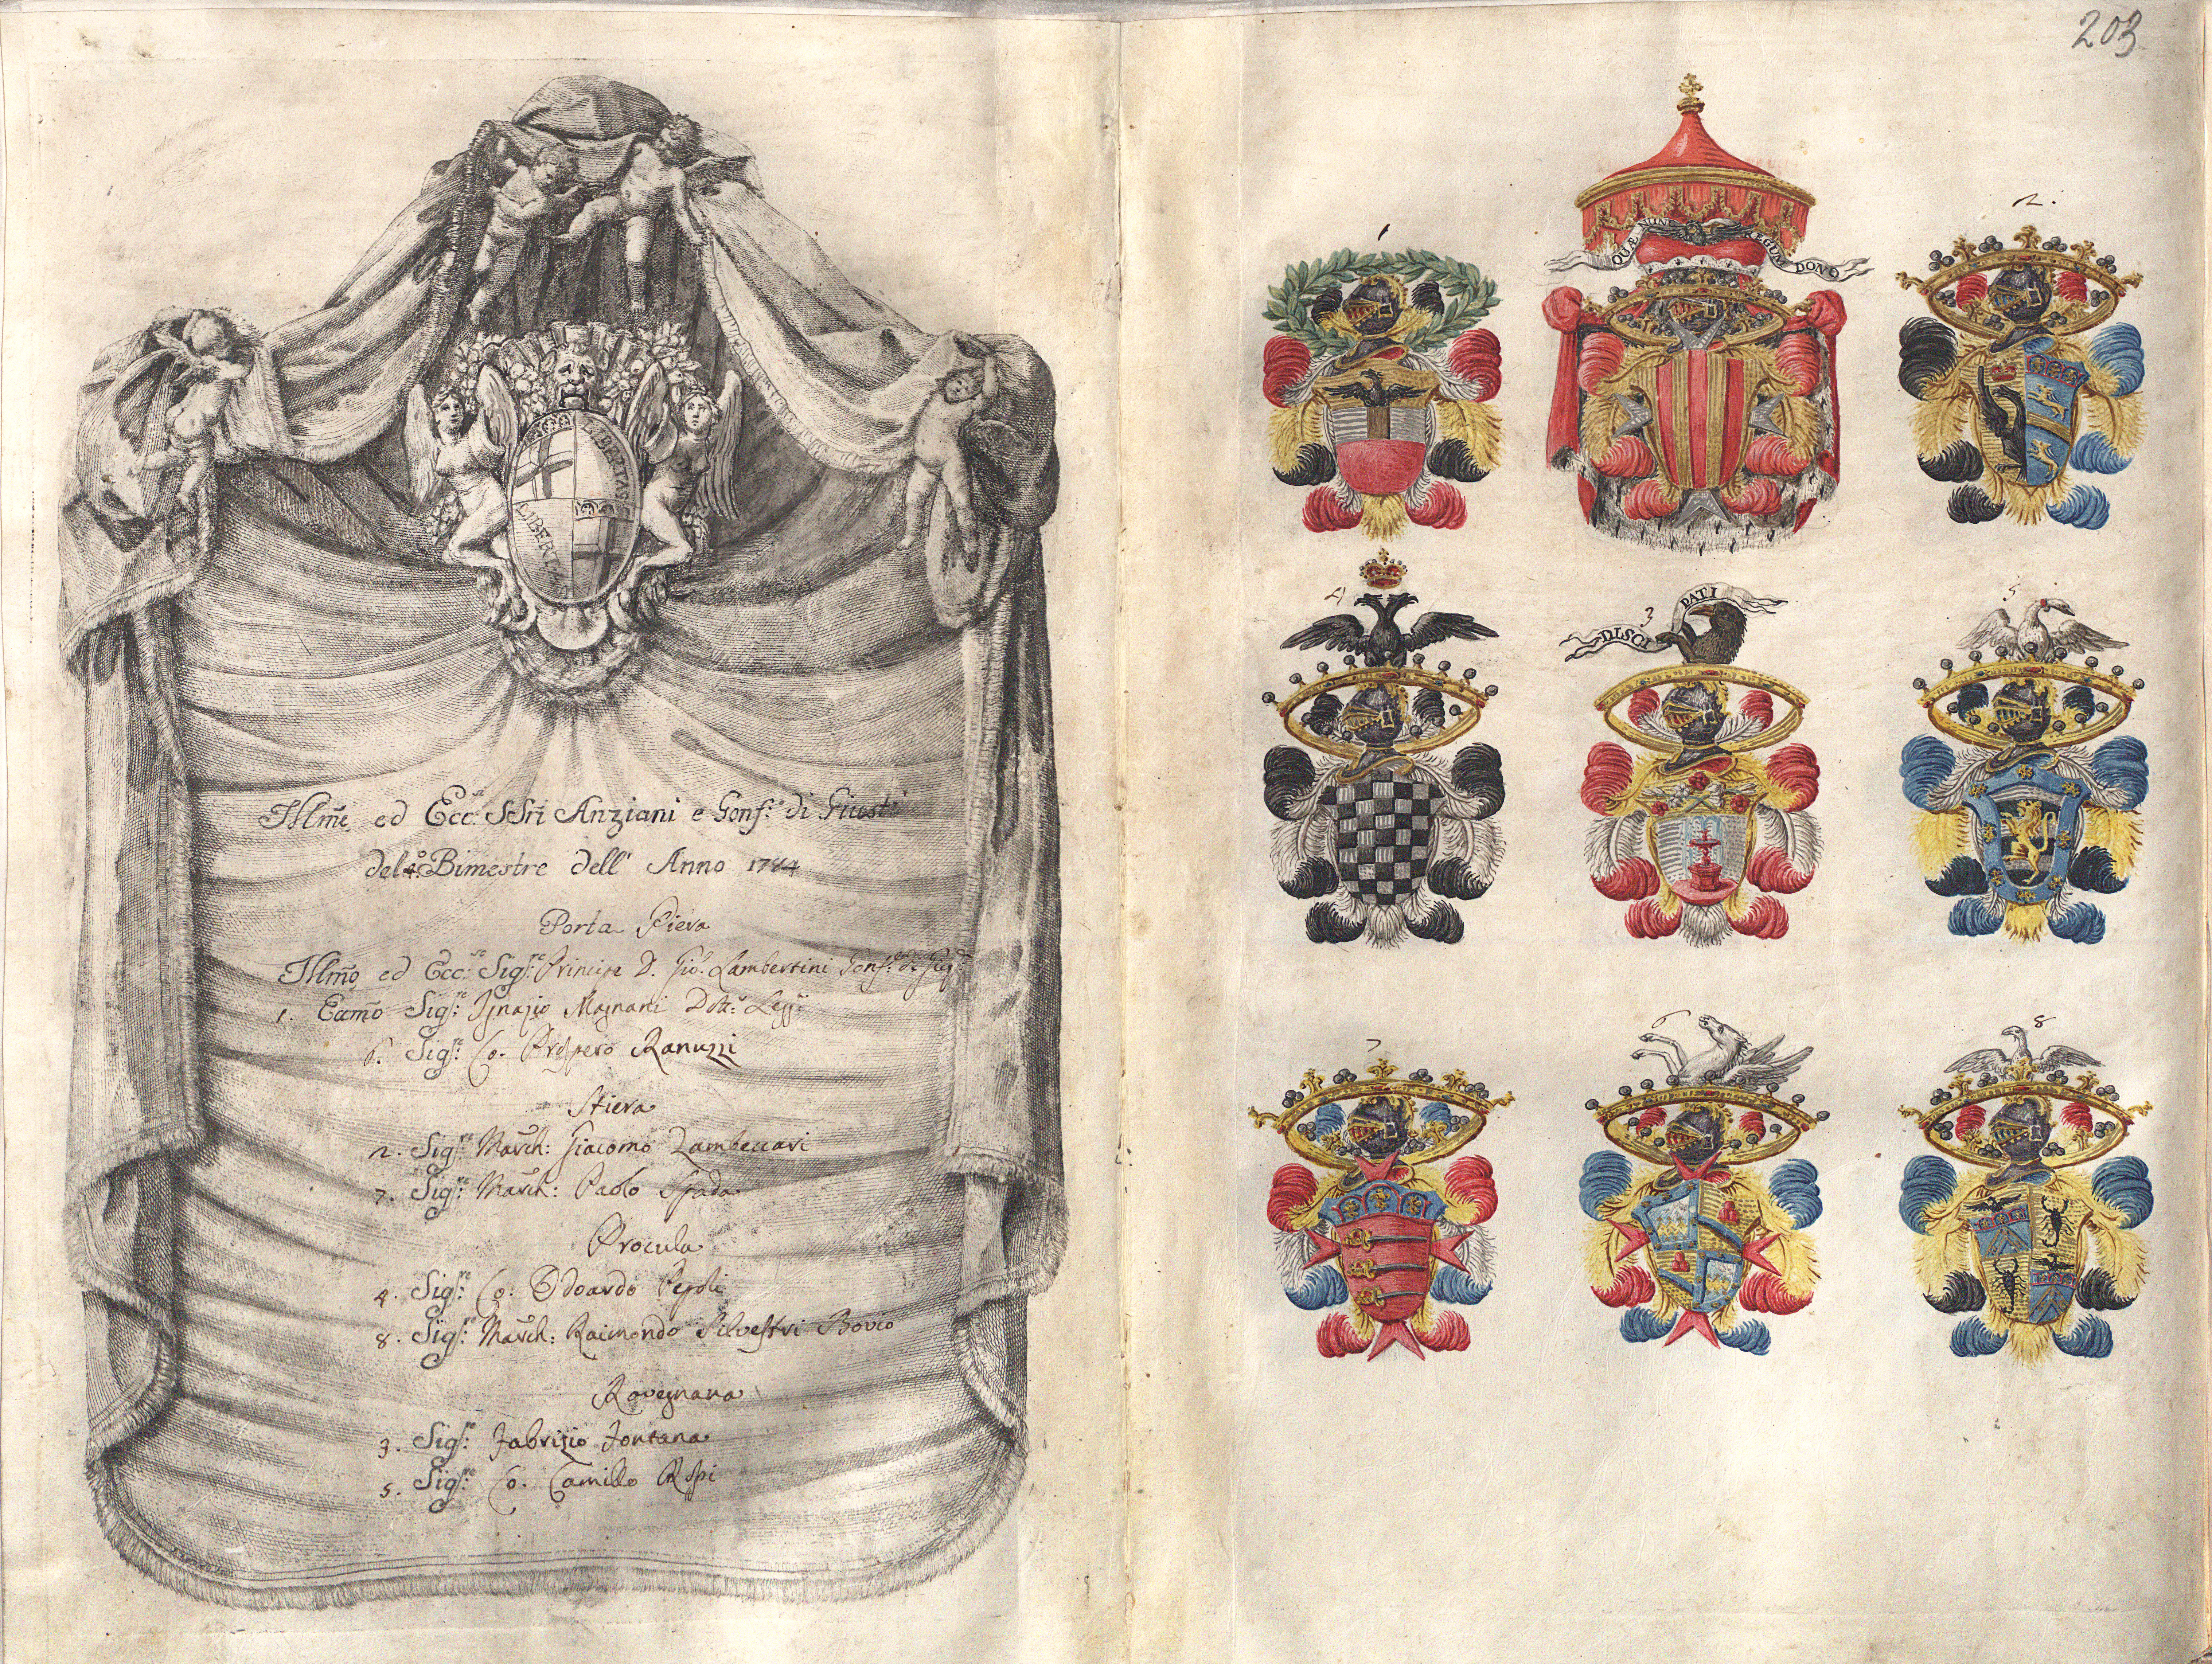 LIBERTAS
LIBERTAS
Illmi ed Ecc:si SSri Anziani e Gonf:re di Giust:a
del 4:o Bimestre dell' Anno 1784
Porta Piera
Illmo ed Ecc:so Sig:re Principe D. Gio: Lambertini Gonf:re di Giu:
1. Ecc̃mo Sig:re Ignazio Magnani Dott:r Legg:
6. Sig:re Co. Prospero Ranuzzi
Stiera
2. Sig:re March: Giacomo Zambeccari
7. Sig:re March: Paolo Spada
Procula
4. Sig:re Co: Odoardo Pepoli
8. Sig:re March: Raimondo Silvestri Bovio
Ravegnana
3. Sig:re Fabrizio Fontana
5. Sig:re Co. Camillo
203
1
QUÆ NON REGUM DONO
2.
4
3
DISCE PATI
5
7
6
8